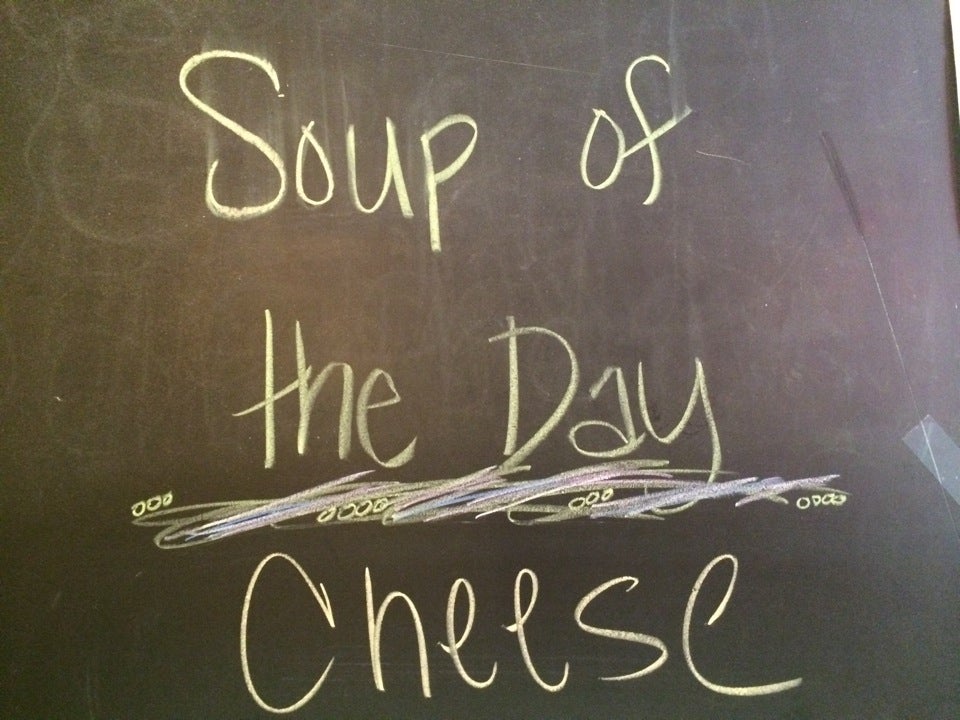 Soup of
the Day
Cheese